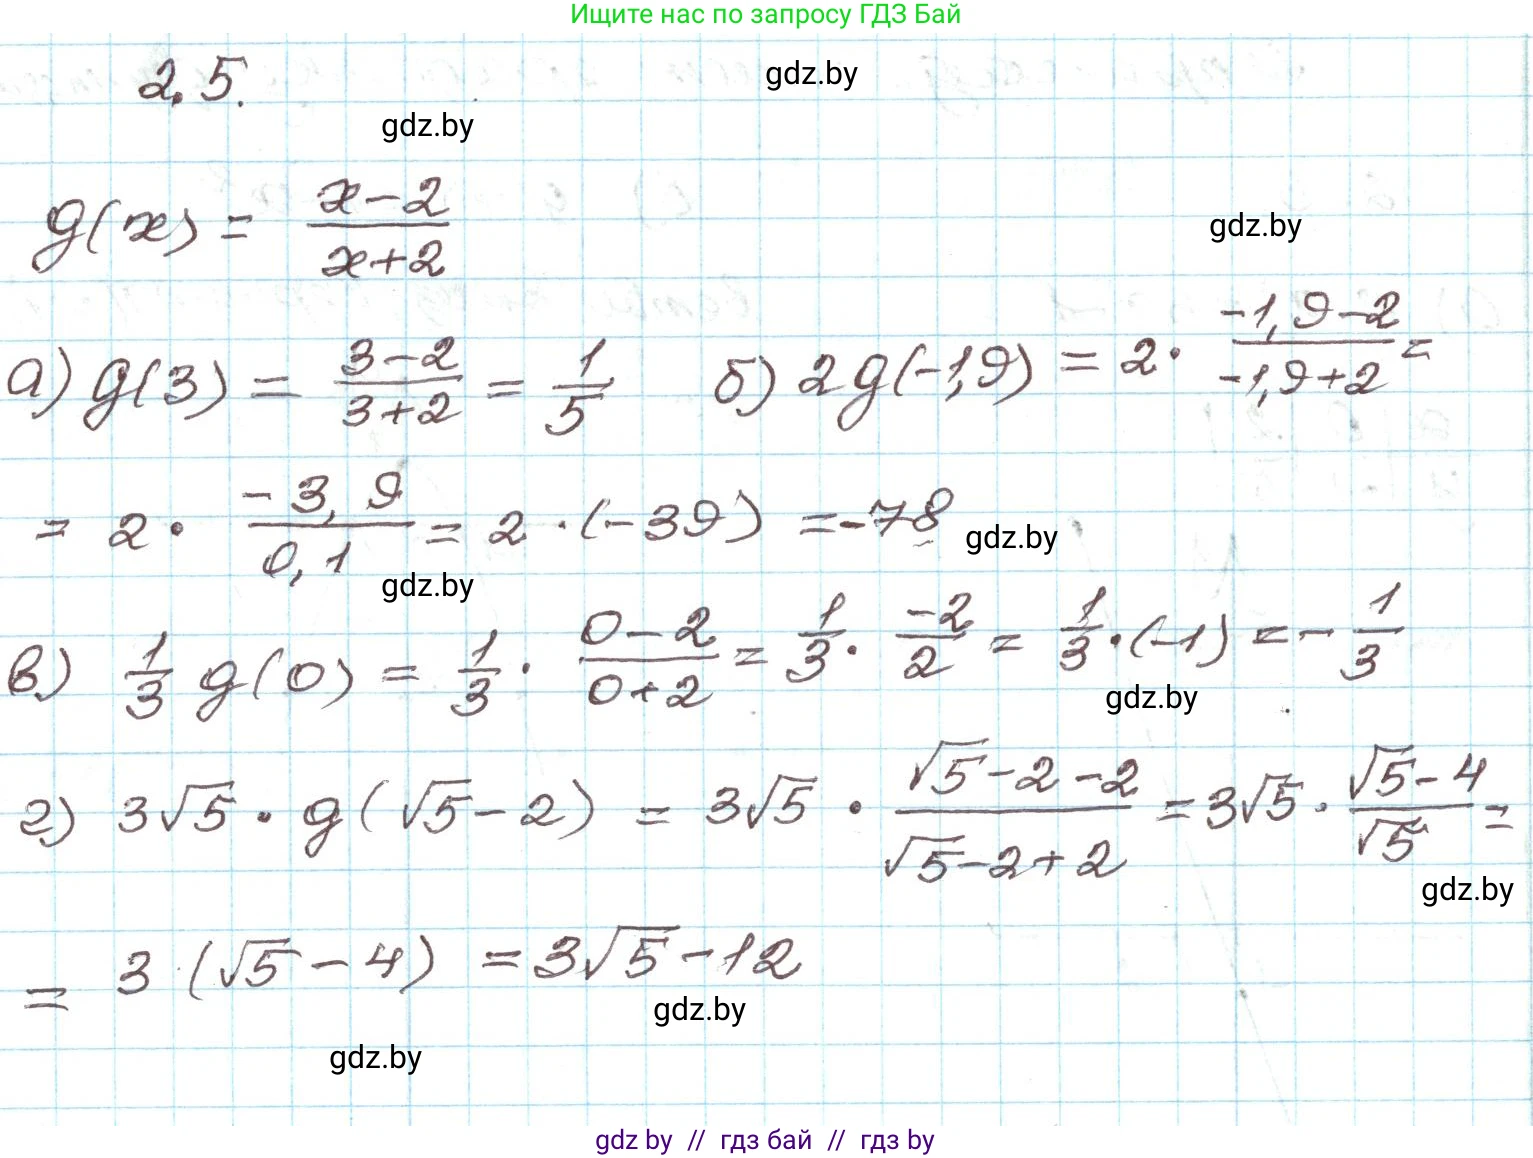 Ищите нас по запросу ГДЗ Бай
2.5.
gdz.by
gdz.by
g(x) = \frac{x-2}{x+2}
gdz.by
а) g(3) = \frac{3-2}{3+2} = \frac{1}{5} б) 2g(-1,9) = 2 · \frac{-1,9-2}{-1,9+2} =
= 2 · \frac{-3,9}{0,1} = 2 · (-39) = -78
gdz.by
gdz.by
в) \frac{1}{3} g(0) = \frac{1}{3} · \frac{0-2}{0+2} = \frac{1}{3} · \frac{-2}{2} = \frac{1}{3} · (-1) = -\frac{1}{3}
gdz.by
г) 3√5 · g(√5-2) = 3√5 · \frac{√5-2-2}{√5-2+2} = 3√5 · \frac{√5-4}{√5} =
gdz.by
= 3 (√5-4) = 3√5-12
gdz.by
gdz.by
gdz by // гдз бай // гдз by